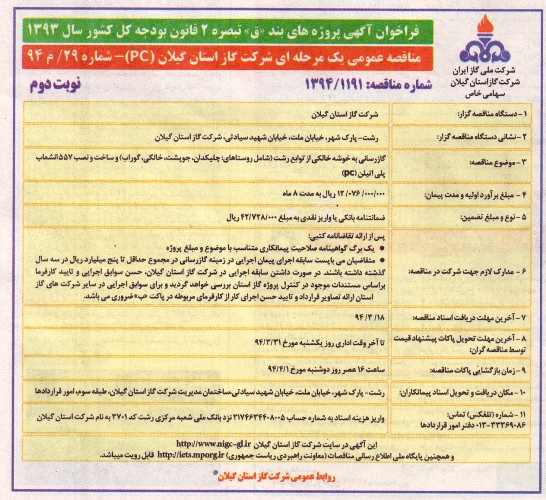 فراخوان آگهی پروژه های بند «ق» تبصره ۲ قانون بودجه کل کشور سال ۱۳۹۳
مناقصه عمومی یک مرحله ای شرکت گاز استان گیلان (PC)- شماره ۲۹/ م ۹۴
شرکت ملی گاز ایران
شرکت گاز استان گیلان
سهامی خاص
شماره مناقصه: ۱۳۹۴/۱۱۹۱
نوبت دوم
۱- دستگاه مناقصه گزار:
شرکت گاز استان گیلان
۲- نشانی دستگاه مناقصه گزار:
رشت- پارک شهر، خیابان ملت، خیابان شهید سیادتی، شرکت گاز استان گیلان
۳- موضوع مناقصه:
گازرسانی به خوشه خالکی از توابع رشت (شامل روستاهای: چلیکدان، جوبشت، خالکی، گوراب) و ساخت و نصب ۵۵۷ انشعاب
پلی اتیلن (PC)
۴- مبلغ برآورد اولیه و مدت پیمان:
۱۲/۰۷۶/۰۰۰/۰۰۰ ریال به مدت ۸ ماه
۵- نوع و مبلغ تضمین:
ضمانتنامه بانکی یا واریز نقدی به مبلغ ۴۲/۷۲۸/۰۰۰ ریال
۶- مدارک لازم جهت شرکت در مناقصه:
پس از ارائه تقاضانامه کتبی:
● یک برگ گواهینامه صلاحیت پیمانکاری متناسب با موضوع و مبلغ پروژه
● متقاضیان می بایست سابقه اجرای پیمان اجرایی در زمینه گازرسانی در مجموع حداقل تا پنج میلیارد ریال در سه سال
گذشته داشته باشند. در صورت داشتن سابقه اجرایی در شرکت گاز استان گیلان، حسن سوابق اجرایی و تایید کارفرما
براساس مستندات موجود در کنترل پروژه گاز استان بررسی خواهد گردید و برای سوابق اجرایی در سایر شرکت های گاز
استان ارائه تصاویر قرارداد و تایید حسن اجرای کار از کارفرمای مربوطه در پاکت «ب» ضروری می باشد.
۷- آخرین مهلت دریافت اسناد مناقصه:
۹۴/۳/۱۸
۸- آخرین مهلت تحویل پاکات پیشنهاد قیمت
توسط مناقصه گران:
تا آخر وقت اداری روز یکشنبه مورخ ۹۴/۳/۳۱
۹- زمان بازگشایی پاکات مناقصه:
ساعت ۱۶ عصر روز دوشنبه مورخ ۹۴/۴/۱
۱۰- مکان دریافت و تحویل اسناد پیمانکاران:
رشت- پارک شهر، خیابان ملت، خیابان شهید سیادتی، ساختمان مدیریت شرکت گاز استان گیلان، طبقه سوم، امور قراردادها
۱۱- شماره (تلفکس) تماس:
۰۱۳-۳۳۲۶۹۰۸۶ دفتر امور قراردادها
واریز هزینه اسناد به شماره حساب ۲۱۷۴۶۳۴۴۰۸۰۰۵ نزد بانک ملی شعبه مرکزی رشت کد ۳۷۰۱ به نام شرکت گاز استان گیلان
این آگهی در سایت شرکت گاز استان گیلان http://www.nigc-gl.ir
و همچنین پایگاه ملی اطلاع رسانی مناقصات (معاونت راهبردی ریاست جمهوری) http://iets.mporg.ir قابل رویت میباشد.
روابط عمومی شرکت گاز استان گیلان